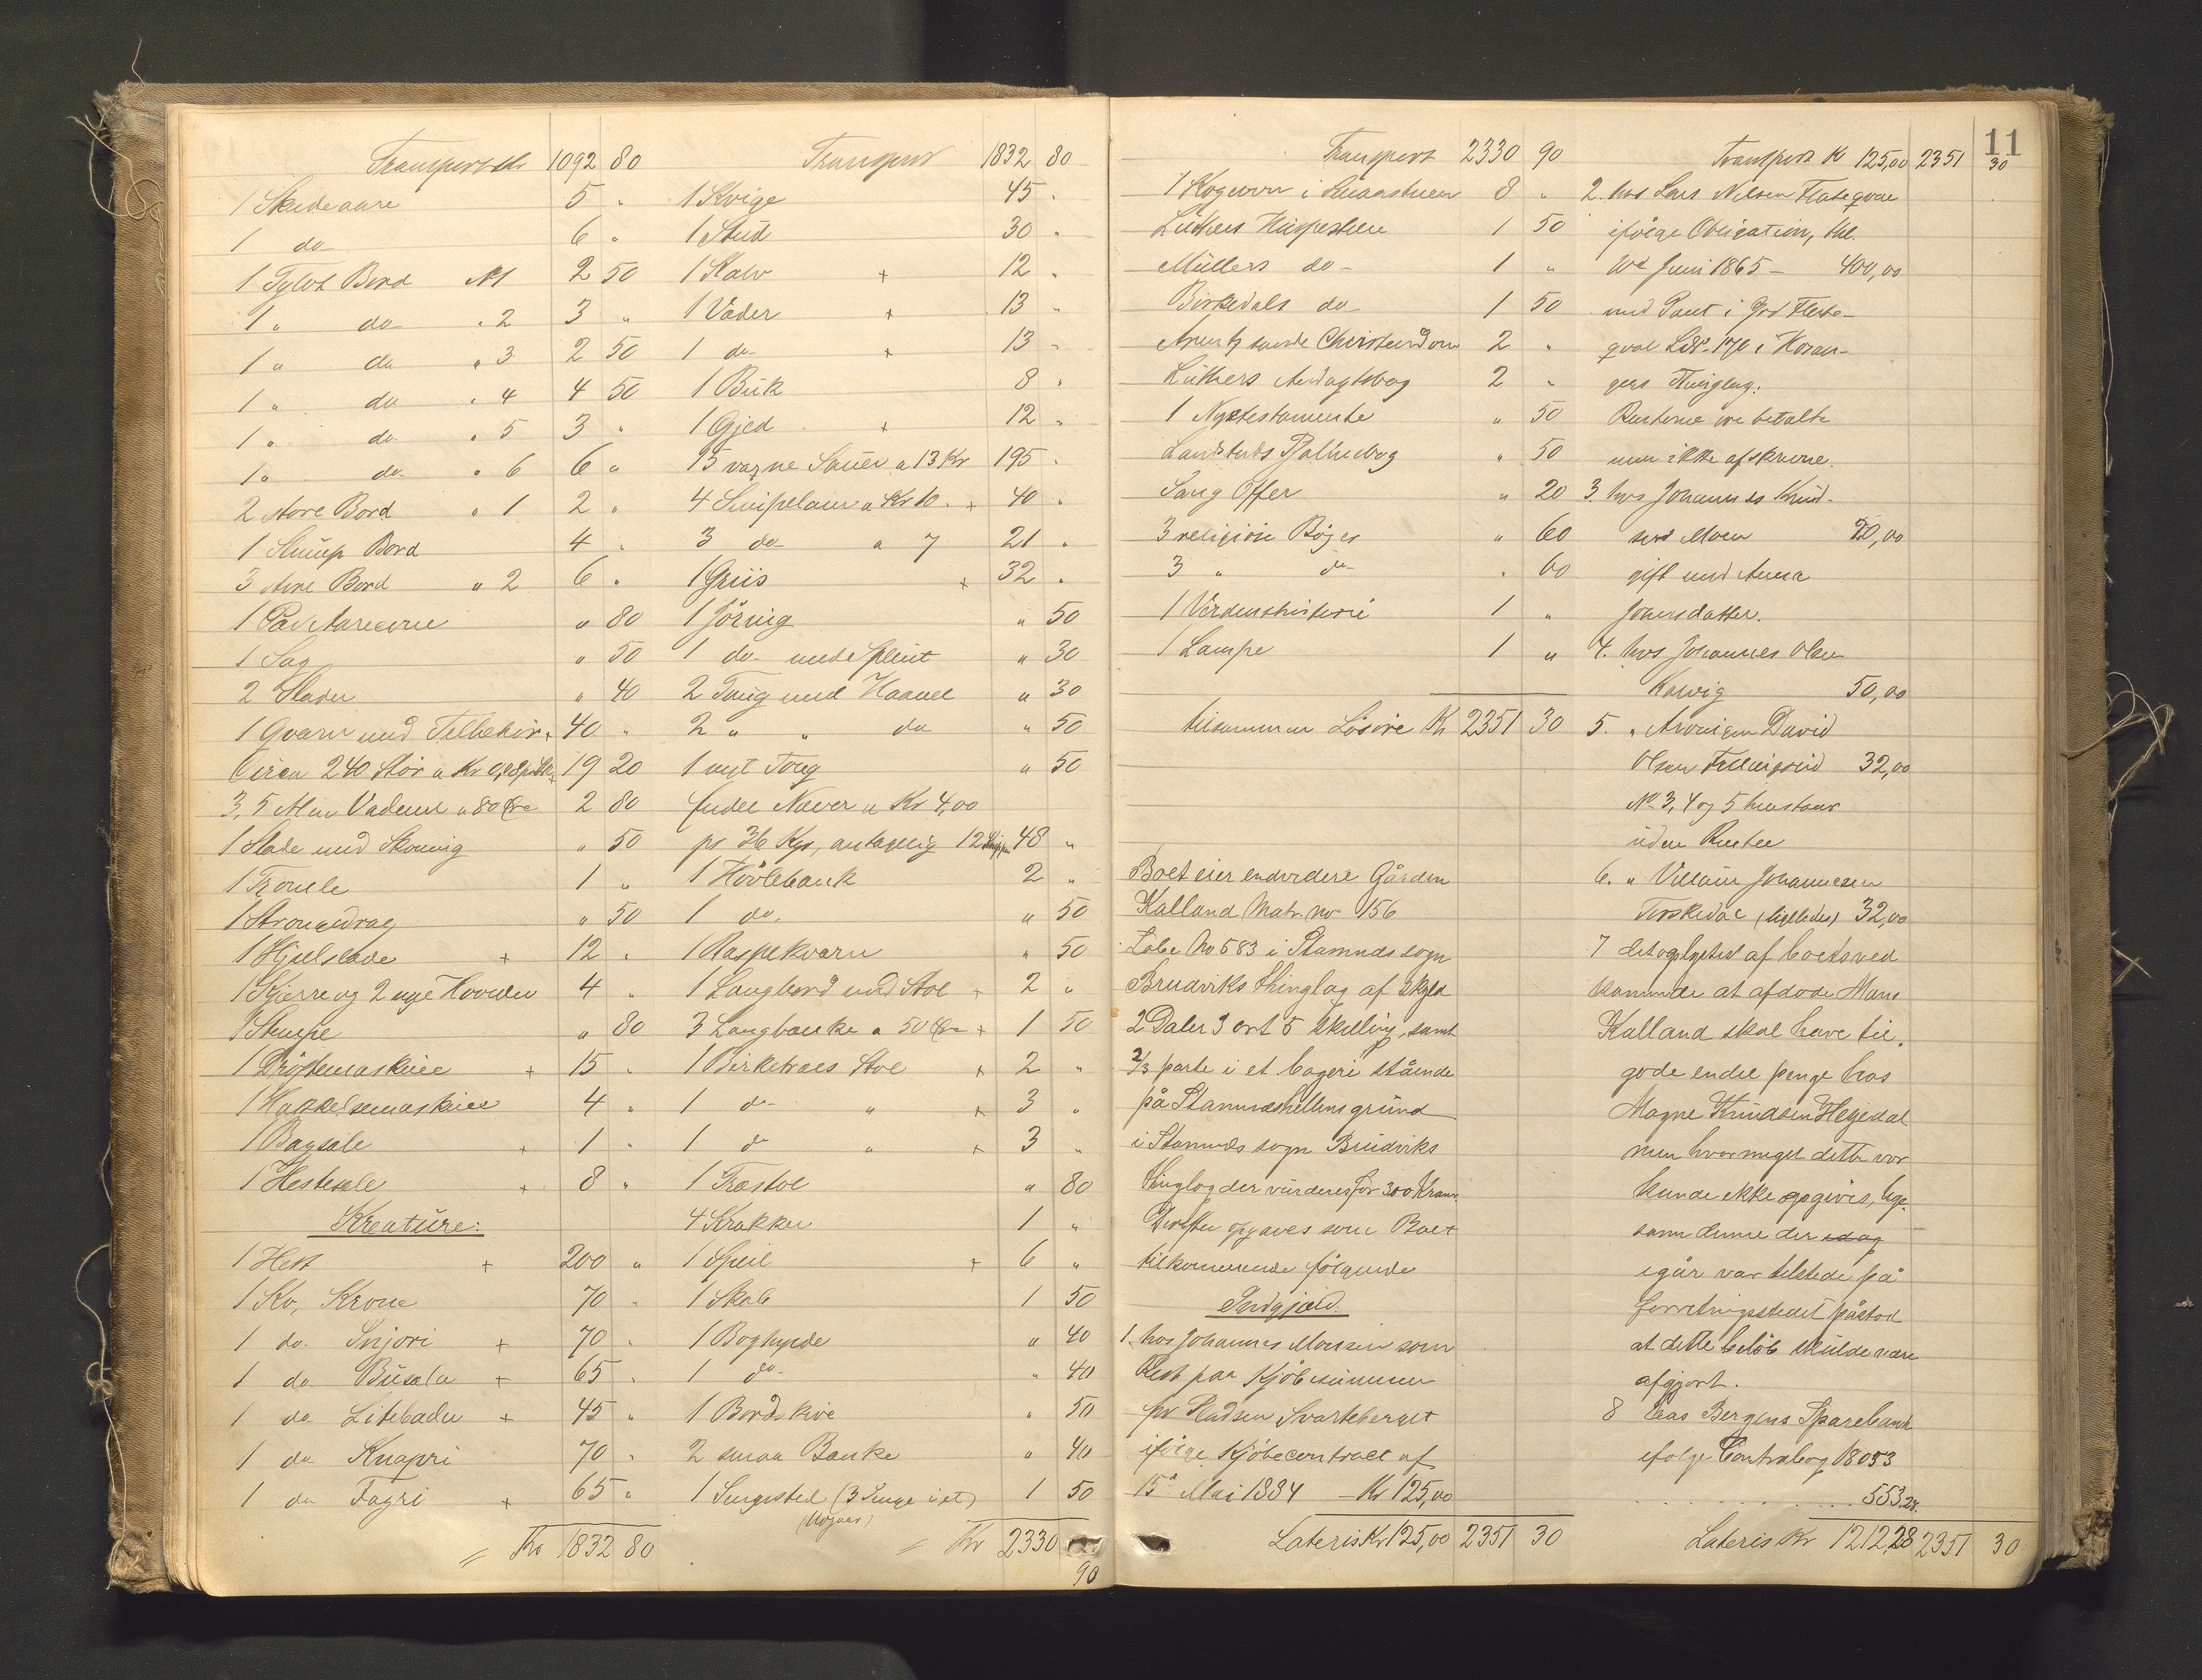 Transport Kr 1092 80
1 Skideaare 5 "
1 do 6 "
1 Tylvt Bord N 1 2 50
1 " do " 2 3 "
1 " do " 3 2 50
1 " do " 4 4 50
1 " do " 5 3 "
1 " do " 6 6 "
2 store Bord " 1 2 "
1 Stump Bord 4 "
3 store Bord " 2 6 "
1 " 80
1 Sag " 50
2 Slæder " 40
1 Qværn med Tilbehør + 40 "
Circa 240 Stør a Kr 0,08 pr Stk 19 20
3,5 Meter Vadmel a 80 Øre 2 80
1 Slæde med Skoning " 50
1 Tromle 1 "
1 " 50
1 Hjulslæde + 12 "
1 Kjærre og 2 nye Hoveder 4 "
1 Stampe " 80
1 Drøftemaskine + 15 "
1 Hakkelsemaskine 4 "
1 Baksele + 1 "
1 Hestesele + 8 "
Kreature:
1 Hest + 200 "
1 Ko, Krone 70 "
1 do Snjori + 70 "
1 do Busela + 65 "
1 do Litebadn + 45 "
1 do Knapri 70 "
1 do Fagri + 65 "
= Kr 1832 80
Transport 1832 80
1 Kvige 45 "
1 Stud 30 "
1 Kalv + 12 "
1 Væder + 13 "
1 do + 13 "
1 Buk 8 "
1 Gjed + 12 "
15 voxne Sauer a 13 Kr 195 "
4 a Kr 10 + 40 "
3 do a 7 21 "
1 Griis + 32 "
1 Jörnig " 50
1 do med Splint " 30
2 Toug med Haanel " 30
2 " " do " 50
1 nyt Toug " 50
Endel Næver a Kr 4,00
pr 36 Kgr, antagelig 12 48 "
1 Høvlebænk 2 "
1 do. " 50
1 Raspekværn " 50
1 Langbord med Stol + 2 "
3 Langbænke a 50 Øre + 1 50
1 Birketræes Stol + 2 "
1 do " + 3 "
1 do " + 3 "
1 Træstol " 80
4 Krakker 1 "
1 Speil + 6 "
1 Skab 1 50
1 Boghylde " 40
1 do " 40
1 Bordskive " 50
2 smaa Bænke " 40
1 Sengested (3 Senge i et) 1 50
= Kr 2330 90
Transport 2330 90
1 Kogeovn i Smaastuen 8 "
Luthers Huspostille 1 50
Müllers do 1 "
Birkedals do 1 50
Arentz sande Christendom 2 "
Luthers Andagtsbog 2 "
1 Nytestamente " 50
Landstads Psalmebog " 50
Sang Offer " 20
3 religiøse Bøger " 60
3 " do " 60
1 Verdenshistorie 1 "
1 Lampe 1 "
tilsammen Løsøre Kr 2351 30
Boet eier endvidere Gården
Kalland Matr. no 156
Løbe No 583 i Stamnæs sogn
Brudviks thinglag af skyld
2 Daler 3 ort 5 skilling, samt
2/3 parte i et bageri stående
på Stamneshellens grund
i Stamnæs sogn Brudviks
thinglag der vurderes for 300 Kroner
Derefter opgaves som Boet
tilkommende følgende
Indgjæld.
1. hos Johannes Monsen som
Rest paa Kjøbesummen
for Pladsen Svarteberget
ifølge Kjøbecontract af
15de Mai 1884 – Kr 125,00
Lateris Kr 125,00 2351 30
11
Transport Kr 125,00 2351 30
2. hos Lars Nilsen Flatequal
ifølge Obligation, thl.
10de Juni 1865 – 400,00
med Pant i Grd Flate-
qual LNr. 170 i Hosan-
gers Thinglag.
Renterne ere betalte
men ikke afskrevne.
3. hos Johannes Knud-
sen Moen 20,00
gift med Anna
Johnsdatter.
4. hos Johannes Olsen
Kalvig 50,00
5. " David
Olsen 32,00
No 3, 4 og 5 henstaar
uden Renter
6. " Villum Johannesen
Torskedal (ligeledes) 32,00
7 det oplystes af boets ved
kommende at afdøde Mons
Kalland skal have til
gode endel penge hos
Magne Knudsen Helgedal
men hvor meget dette var
kunde ikke opgives, lige
som denne der idag
igår var tilstede på
forretningsstedet påstod
at dette beløb skulde være
afgjort.
8 hos Bergens Sparebank
ifølge Contrabog 18053
553,28.
Lateris Kr 1212,28 2351 30